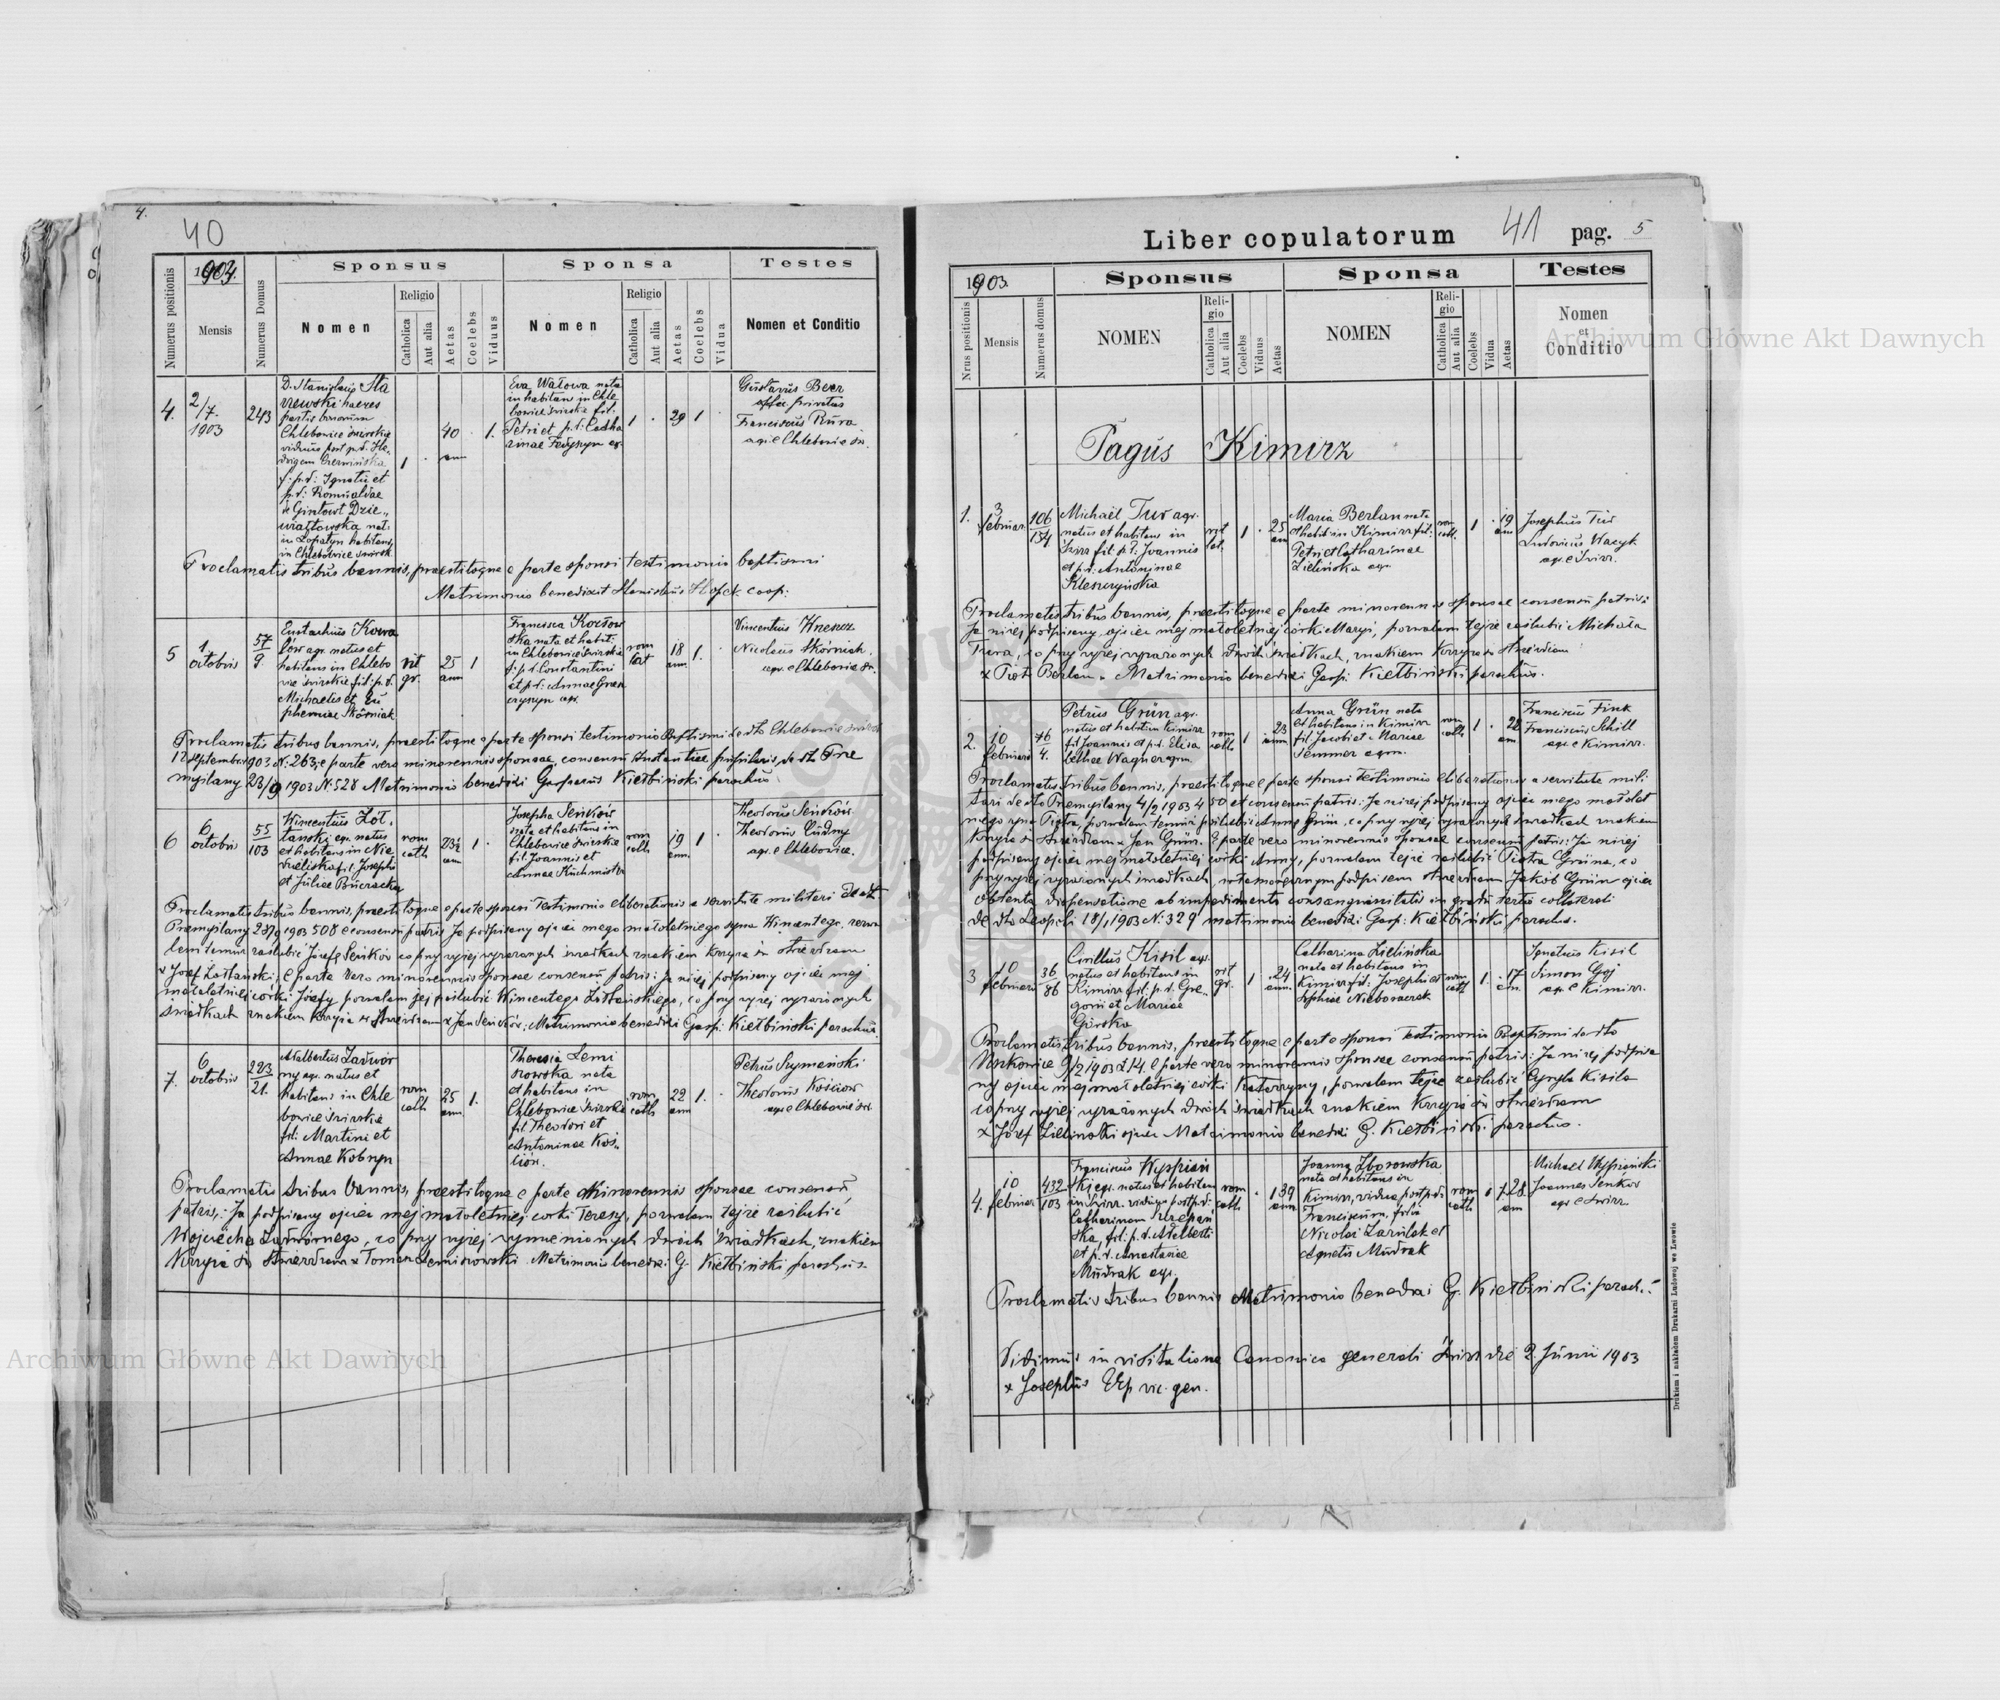 4.
40
1903.
Numerus positionis
Mensis
Numerus Domus
Sponsus
Nomen
Religio
Catholica
Aut alia
Aetas
Coelebs
Viduus
Sponsa
Nomen
Religio
Catholica
Aut alia
Aetas
Coelebs
Vidua
Testes
Nomen et Conditio
4.
2/7.
1903
243
D. Stanislaus Sta
rzewski haeres
partis bonorum
Chlebowice świrskie
viduus post p.d. He-
f: p.d: Ignatii et
p.d: Romualdae
de Gintowt Dzie-
wiałtowska nat:
in Łopatyn habitans
in Chlebowice świrsk
1
40
ann
1.
Eva Wałowa nata
in habitans in Chle
bowice świrskie fil:
Petri et p.d: Catha
rinae Fedyszyn agr.
1
29
1
Gustavus Beer
offic. privatus
Franciscus Rura
agr. e Chlebowice św.
Proclamatis tribus bannis, praestitoque e parte sponsi testimonio baptismi
Matrimonio benedixit Stanislaus coop:
5
1
octobris
57
9.
Eustachius Kowa
low agr. natus et
habitans in Chlebo
wice świrskie fil: p.d.
Michaelis et Eu
phemiae Skórniak
rit
gr.
25
ann
1
Francisca Kozłow
ska nata et habit:
in Chlebowice świrskie
f: p.d. Constantini
et p.d: Annae Gren
czyszyn agr.
rom
18
ann
1.
Vincentius Knesz
Nicolaus Skórniak
agr. e Chlebowice św.
Proclamatis tribus bannis, praestitoque e parte sponsi testimonio Baptismi de dto Chlebowice świrsk
12 septembris 903 N. 263; e parte vero minorennis sponsae consensu instantiae pupilaris de dt. Prze
myślany 23/9 1903 N. 528 Matrimonio benedixi Gasparus Kiełbiński parochus
6
6
octobris
55
103
Vincentius Zoł-
tański agr. natus
et habitans in Nie
dzieliska fil. Josephi
et Juliae Bucracka
rom
cath
23½
ann
1.
Josepha Seńków
nata et habitans in
Chlebowice świrskie
fil. Joannis et
Annae Kuchmistr
rom
cath
19
ann.
1
Theodorus Seńków
Theodorus Cudny
agr. e Chlebowice.
Proclamatis tribus bannis, praestitoque e parte sponsi Testimonio eliberationis a servitute militari de dt
Przemyślany 23/9 1903 508 e consensu patris Ja podpisany ojciec mego małoletniego syna Wincentego, zezwa
lam temuż zaślubić Józefę Seńków co przy wyżej wyrażonych świadkach znakiem krzyża św. stwierdzam
x Józef Zołtański; e parte vero minorennis sponsae consensu patris: Ja niżej podpisany ojciec mej
małoletniej córki Józefy pozwalam jej zaślubić Wincentego Zołtańskiego, co przy wyżej wyrażonych
świadkach znakiem krzyża św. stwierdzam x Jan Seńków; Matrimonio benedixi Gasp. Kiełbiński parochus
7.
6
octobris
223
21.
Adalbertus Zadwór
ny agr. natus et
habitans in Chle
bowice świrskie
fil: Martini et
Annae Kobryn
rom
cath
25
ann
1.
Theresia Lemi
szowska nata
et habitans in
Chlebowice świrskie
fil. Theodori et
Antoninae Koś-
ciów.
rom.
cath
22
ann
1.
Petrus Szymański
Theodorus Kościow
agr. e Chlebowice św.
Proclamatis tribus bannis, praestitoque e parte minorennis sponsae consensu
patris: Ja podpisany ojciec mej małoletniej córki Teresy, pozwalam tejże zaślubić
Wojciecha Zadwórnego, co przy wyżej wymienionych dwóch świadkach, znakiem
Krzyża św. stwierdzam x Tomasz Lemiszowski. Matrimonio benedixi G. Kiełbiński parochus
Liber copulatorum
41
pag. 5
1903.
Nrus positionis
Mensis
Numerus domus
Sponsus
NOMEN
Reli-
gio
Catholica
Aut alia
Coelebs
Viduus
Aetas
Sponsa
NOMEN
Reli-
gio
Catholica
Aut alia
Coelebs
Vidua
Aetas
Testes
Nomen
et
Conditio
Pagus Kimirz
1.
3
februar.
106
154
Michael Tur agr.
natus et habitans in
Świrz fil. p.d. Joannis
et p.d. Antoninae
Kleszczyńska
rit
lat.
1
25
ann
Maria Berlan nata
et habit. in Kimirz fil:
Petri et Catharinae
Zielińska agr.
rom
cath.
1.
19
ann
Josephus Tur
Ludovicus Wazyk
agr. e Świrz.
Proclamatis tribus bannis, praestitoque e parte minorennis sponsae consensu patris:
Ja niżej podpisany ojciec mej małoletniej córki Maryi, pozwalam tejże zaślubić Michała
Tura, co przy wyżej wyrażonych dwóch świadkach, znakiem krzyża św. stwierdzam
x Piotr Berlan. Matrimonio benedixi Gasp. Kiełbiński parochus.
2.
10
februarii
76
4.
Petrus Grün agr.
natus et habit. in Kimirz
fil. Joannis et p.d. Elisa
bethae Wagner agr.
rom
cath
1
23
ann
Anna Grün nata
et habitans in Kimirz
fil. Jacobi et Mariae
Semmer agr.
rom
cath
1
22
ann
Franciscus Fink
Franciscus Schill
agr. e Kimirz.
Proclamatis tribus bannis, praestitoque e parte sponsi Testimonio eliberationis a servitute mili
tari de dto Przemyślany 4/2 1903 450 et consensu patris: Ja niżej podpisany ojciec mego małolet
niego syna Piotra, pozwalam temuż zaślubić Annę Grün, co przy wyżej wyrażonych świadkach znakiem
krzyża św. stwierdzam x Jan Grün. E parte vero minorennis sponsae consensu patris: Ja niżej
podpisany ojciec mej małoletniej córki Anny, pozwalam tejże zaślubić Piotra Grüna, co
przy wyżej wyrażonych świadkach, własnoręcznym podpisem stwierdzam Jakób Grün ojciec
Obtenta dispensatione ab impedimento consanguinitatis in gradu tertio collaterali
de dto Leopoli 18/1 1903 N. 329 matrimonio benedixi Gasp: Kiełbiński parochus.
3
10
februarii
36
86
Cirillus Kisil agr.
natus et habitans in
Kimirz fil. p.d. Gre-
gorii et Mariae
Górska
rit
gr.
1
24
ann.
Catharina Zielińska
nata et habitans in
Kimirz fil: Josephi et
Sophiae Nieboraczek
rom
cath
1.
17
ann.
Ignatius Kisil
Simon Gaj
agr. e Kimirz.
Proclamatis tribus bannis, praestitoque e parte sponsi Testimonio Baptismi de dto
Uszkowice 9/2 1903 L 14. e parte vero minorennis sponsae consensu patris: Ja niżej podpisa
ny ojciec mej małoletniej córki Katarzyny, pozwalam tejże zaślubić Cyryla Kisila
co przy wyżej wyrażonych dwóch świadkach znakiem krzyża św. stwierdzam
x Józef Zieliński ojciec Matrimonio benedixi G. Kiełbiński parochus.
4.
10
februar
432
103
Franciscus Wyspiań
ski agr. natus et habitans
in Świrz. viduus post p.d:
Catharinam Szczepań
ska, fil: p.d. Adalberti
et p.d. Anastasiae
Mudrak agr.
rom
cath
1
39
ann
Joanna Zborowska
nata et habitans in
Kimirz, vidua post p.d.
Franciscum, filia
Nicolai Zarulak et
Agnetis Mudrak
rom
cath
1
28.
ann
Michael Wyspiański
Joannes Seńkiv
agr. e Świrz
Proclamatis tribus bannis Matrimonio benedixi G. Kiełbiński paroch.
Vidimus in visitatione Canonica generali Świrz die 2. Junii 1903
x Josephus vic. gen.
Drukiem i nakładem Drukarni Ludowej we Lwowie
Archiwum Główne Akt Dawnych
Archiwum Główne Akt Dawnych